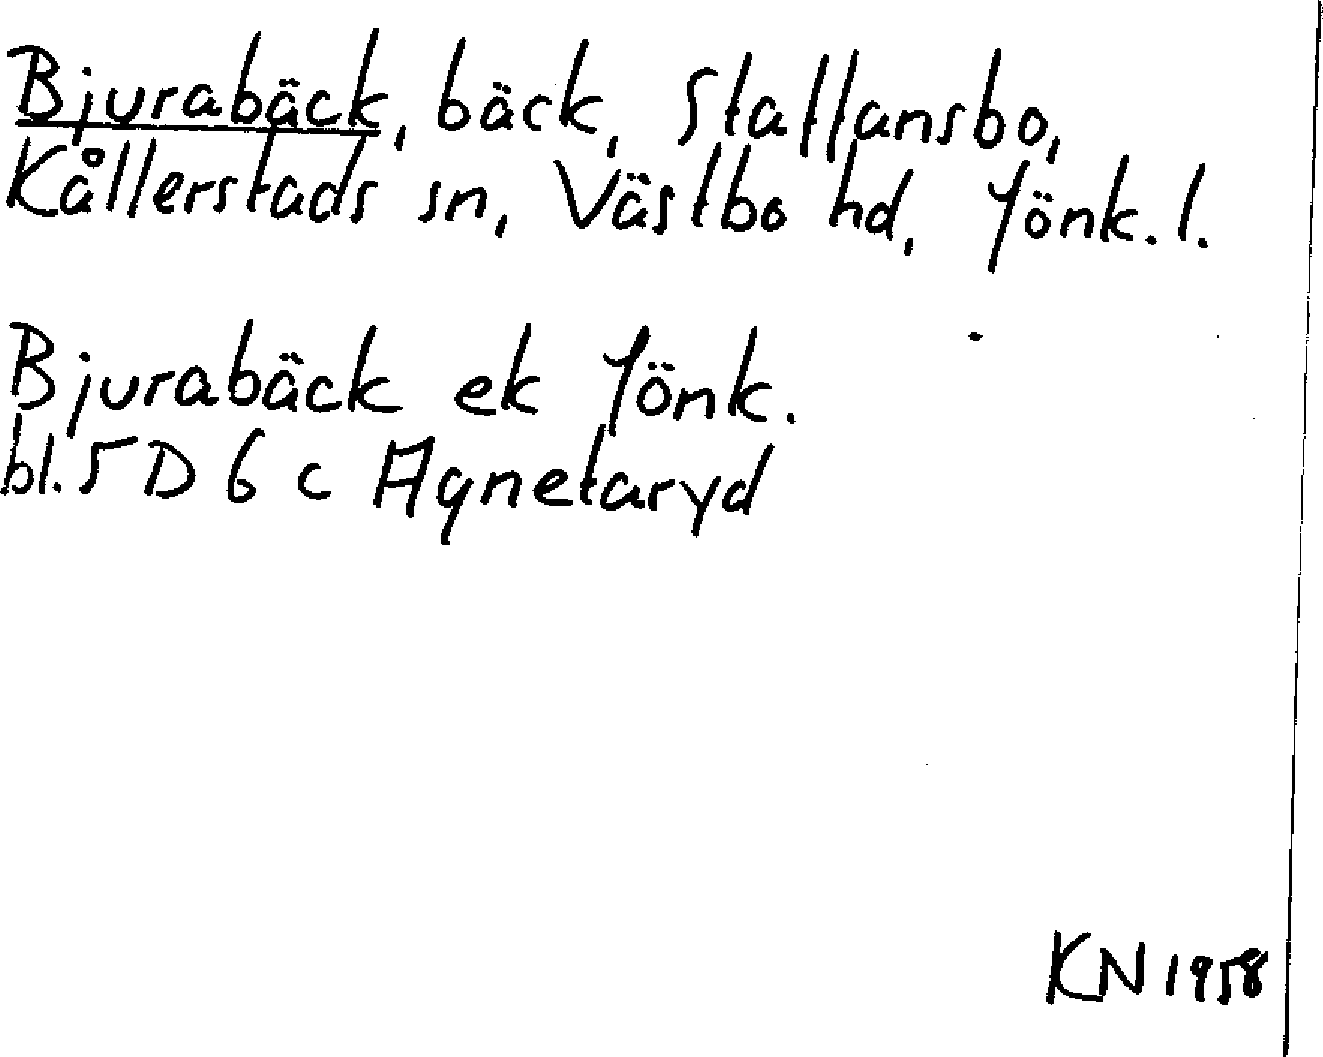 Bjurabäck, bäck, Stallansbo,
Kållerstads sn, Västbo hd, Jönk. l.
Bjurabäck ek Jönk.
bl. 5 D 6 c Agnetaryd
KN 1958